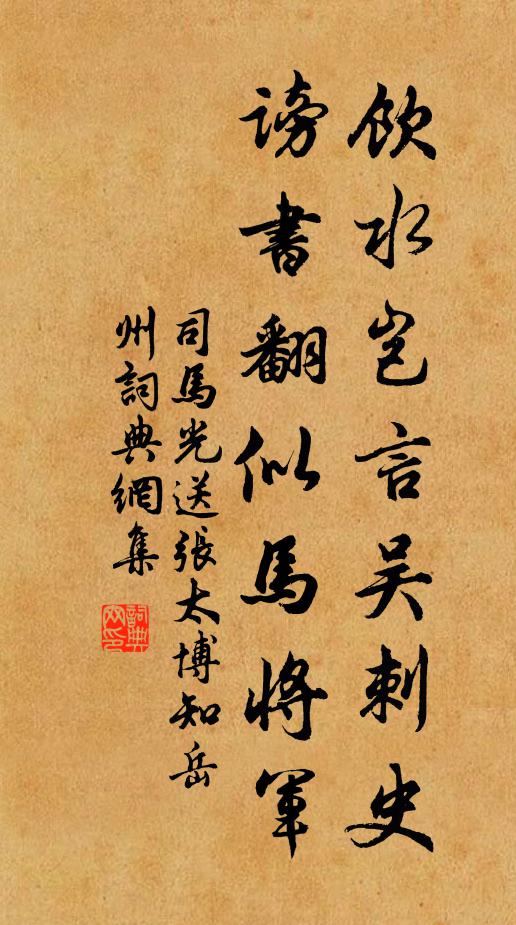 飲水豈言吴刺史
謗書翻似馬將軍
司馬光送張太博知岳
州詞典網集
詞典網印